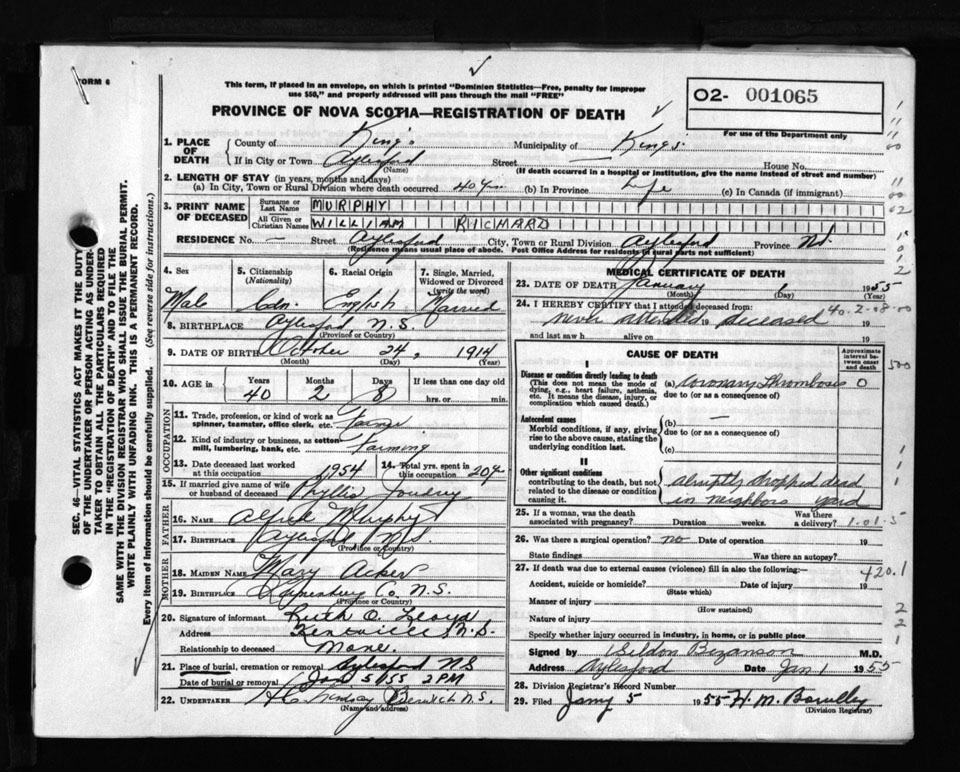 FORM 6
This form, if placed in an envelope, on which is printed "Dominion Statistics—Free, penalty for improper
use $50," and properly addressed will pass through the mail "FREE"
PROVINCE OF NOVA SCOTIA—REGISTRATION OF DEATH
O2- 001065
For use of the Department only
1. PLACE OF DEATH
County of Kings Municipality of Kings
If in City or Town Aylesford Street — House No.
(Name) (If death occurred in a hospital or institution, give the name instead of street and number)
2. LENGTH OF STAY (in years, months and days)
(a) In City, Town or Rural Division where death occurred 40 yrs (b) In Province Life (c) In Canada (if immigrant)
3. PRINT NAME OF DECEASED
Surname or Last Name MURPHY
All Given or Christian Names WILLIAM RICHARD
RESIDENCE No. — Street Aylesford City, Town or Rural Division Aylesford Province N.S.
(Residence means usual place of abode. Post Office Address for residents in rural parts not sufficient)
4. Sex 5. Citizenship (Nationality) 6. Racial Origin 7. Single, Married, Widowed or Divorced (write the word)
Male Cdn. English Married
8. BIRTHPLACE Aylesford N.S.
(Province or Country)
9. DATE OF BIRTH October 24, 1914
(Month) (Day) (Year)
10. AGE in Years Months Days If less than one day old
40 2 8 hrs. or min.
OCCUPATION
11. Trade, profession, or kind of work as
spinner, teamster, office clerk, etc. Farmer
12. Kind of industry or business, as cotton
mill, lumbering, bank, etc. Farming
13. Date deceased last worked at this occupation 1954 14. Total yrs. spent in this occupation 20 yr
15. If married give name of wife
or husband of deceased Phyllis
FATHER
16. NAME Alfred Murphy
17. BIRTHPLACE Aylesford N.S.
(Province or Country)
MOTHER
18. MAIDEN NAME Mary Acker
19. BIRTHPLACE Lunenburg Co. N.S.
(Province or Country)
20. Signature of informant Ruth O. Lloyd
Address Kentville N.S.
Relationship to deceased None.
21. Place of burial, cremation or removal Aylesford NS
Date of burial or removal Jan 5/55 2 PM
22. UNDERTAKER H C Lindsay Berwick N.S.
(Name and address)
MEDICAL CERTIFICATE OF DEATH
23. DATE OF DEATH January 1 1955
(Month) (Day) (Year)
24. I HEREBY CERTIFY that I attended deceased from:
never attended 19 deceased
and last saw h alive on 19
CAUSE OF DEATH
Approximate interval between onset and death
I
Disease or condition directly leading to death
(This does not mean the mode of dying, e.g., heart failure, asthenia, etc. It means the disease, injury, or complication which caused death.)
(a) Coronary Thrombosis 0
due to (or as a consequence of)
Antecedent causes
Morbid conditions, if any, giving rise to the above cause, stating the underlying condition last.
(b) —
due to (or as a consequence of)
(c)
II
Other significant conditions
contributing to the death, but not related to the disease or condition causing it.
abruptly dropped dead
in neighbors yard
25. If a woman, was the death associated with pregnancy? Duration weeks. Was there a delivery?
26. Was there a surgical operation? no Date of operation 19
State findings Was there an autopsy?
27. If death was due to external causes (violence) fill in also the following:
Accident, suicide or homicide? Date of injury 19
(State which)
Manner of injury
(How sustained)
Nature of injury
Specify whether injury occurred in industry, in home, or in public place
Signed by Weldon Bezanson M.D.
Address Aylesford Date Jan 1 1955
28. Division Registrar's Record Number
29. Filed Jany 5 1955 H. M.
(Division Registrar)
40-2-08-00
500
1.01.5
420.1
SEC. 46—VITAL STATISTICS ACT MAKES IT THE DUTY
OF THE UNDERTAKER OR PERSON ACTING AS UNDER-
TAKER TO OBTAIN ALL THE PARTICULARS REQUIRED
IN THE "REGISTRATION OF DEATH" AND TO FILE THE
SAME WITH THE DIVISION REGISTRAR WHO SHALL ISSUE THE BURIAL PERMIT.
WRITE PLAINLY WITH UNFADING INK. THIS IS A PERMANENT RECORD.
Every item of information should be carefully supplied. (See reverse side for instructions.)